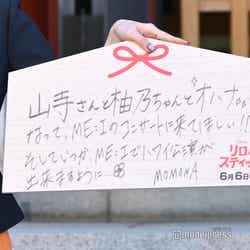 山寺さんと柚乃ちゃんとオハナに
なって、ME:Iのコンサートに来てほしい!!
そしていつか、ME:Iでハワイ公演が
出来ますように
MOMONA
リロ&
スティッ
6月6日
modelpress